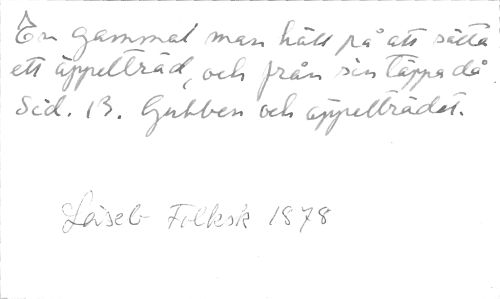 En gammal man höll på att sätta
ett äppelträd, och från sin täppa då
Sid. 13. Gubben och äppelträdet.
Läseb Folksk 1878